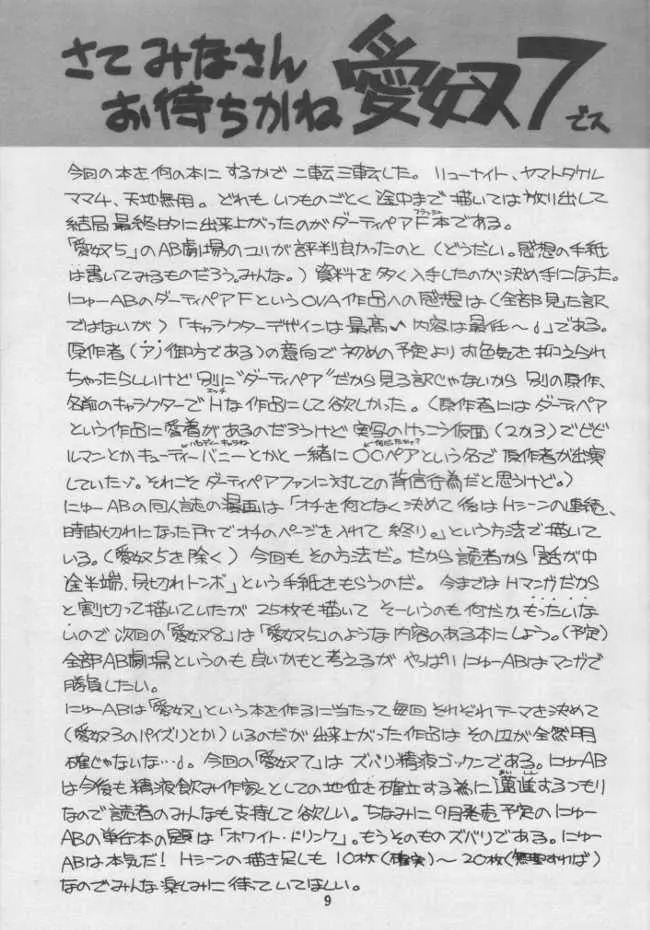 さてみなさん
お待ちかね 愛奴7でス
今回の本を何の本にするかで二転三転した。リューナイト、ヤマトタケル
ママ4、天地無用。どれもいつものごとく途中まで描いては放り出して
結局最終的に出来上がったのがダーティペアF本である。
フラッシュ
「愛奴5」のAB劇場のユリが評判良かったのと(どうだい。感想の手紙
は書いてみるものだろう。みんな。)資料を多く入手したのが決め手になった。
にゅーABのダーティペアFというOVA作品への感想は(全部見た訳
ではないが)「キャラクターデザインは最高♪内容は最低〜♩」である。
原作者(ア)御方である)の意向で初めの予定よりお色気を抑えられ
ちゃったらしいけど別に"ダーティペア"だから見る訳じゃないから別の原作、
名前のキャラクターでHな作品にして欲しかった。(原作者にはダーティペア
エッチ
という作品に愛着があるのだろうけど実写のけっこう仮面(2か3)でビビ
ルマンとかキューティーバニーとかと一緒に〇〇ペアという名で原作者が出演
していたゾ。それこそダーティペアファンに対しての背信行為だと思うけど。)
にゅーABの同人誌の漫画は「オチを何となく決めて後はHシーンの連続、
時間切れになった所でオチのページを入れて終り。」という方法で描いて
いる。(愛奴5を除く)今回もその方法だ。だから読者から「話が中
途半端、尻切れトンボ」という手紙をもらうのだ。今まではHマンガだから
と割切って描いていたが25枚も描いてそーいうのも何だかもったいな
いので次回の「愛奴8」は「愛奴5」のような内容のある本にしよう。(予定)
全部AB劇場というのも良いかもと考えるがやっぱりにゅーABはマンガで
勝負したい。
にゅーABは「愛奴」という本を作るに当たって毎回それぞれテーマを決めて
(愛奴3のパイズリとか)いるのだが出来上がった作品はその辺が全然明
確じゃないな…♩。今回の「愛奴7」はズバリ精液ゴックンである。にゅーAB
は今後も精液飲み作家としての地位を確立する為に邁進するつもり
まいしん
なので読者のみんなも支持して欲しい。ちなみに9月発売予定のにゅー
ABの単行本の題は「ホワイト・ドリンク」。もうそのものズバリである。にゅー
ABは本気だ!Hシーンの描き足しも10枚(確実)〜20枚(無理すれば)
なのでみんな楽しみに待っていてほしい。
9